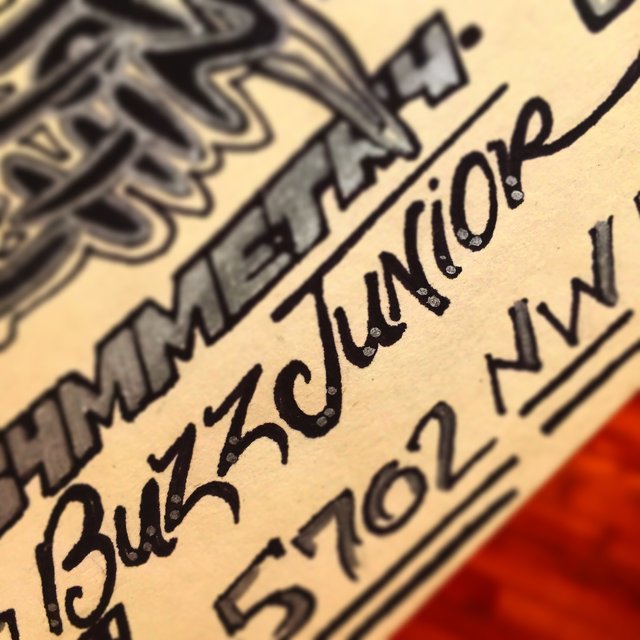 SYMMETRY.
Buzz JuNiOR
5702 NW